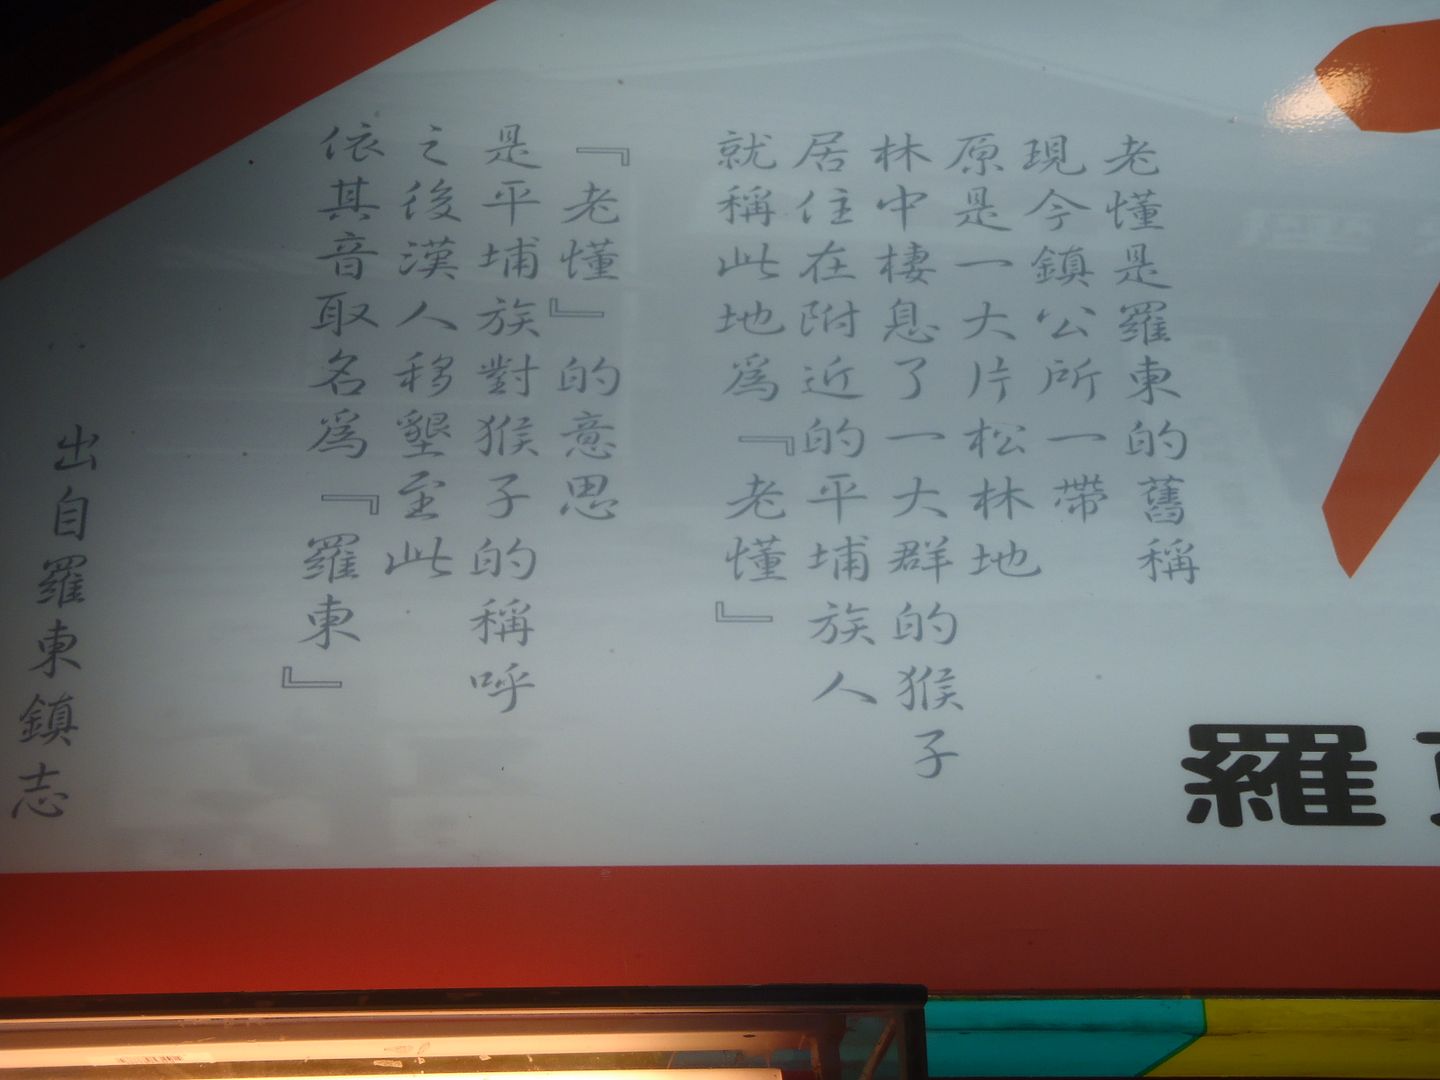 老懂是羅東的舊稱
現今鎮公所一帶
原是一大片松林地
林中棲息了一大群的猴子
居住在附近的平埔族人
就稱此地爲『老懂』
『老懂』的意思
是平埔族對猴子的稱呼
之後漢人移墾至此
依其音取名爲『羅東』
出自羅東鎮志
羅